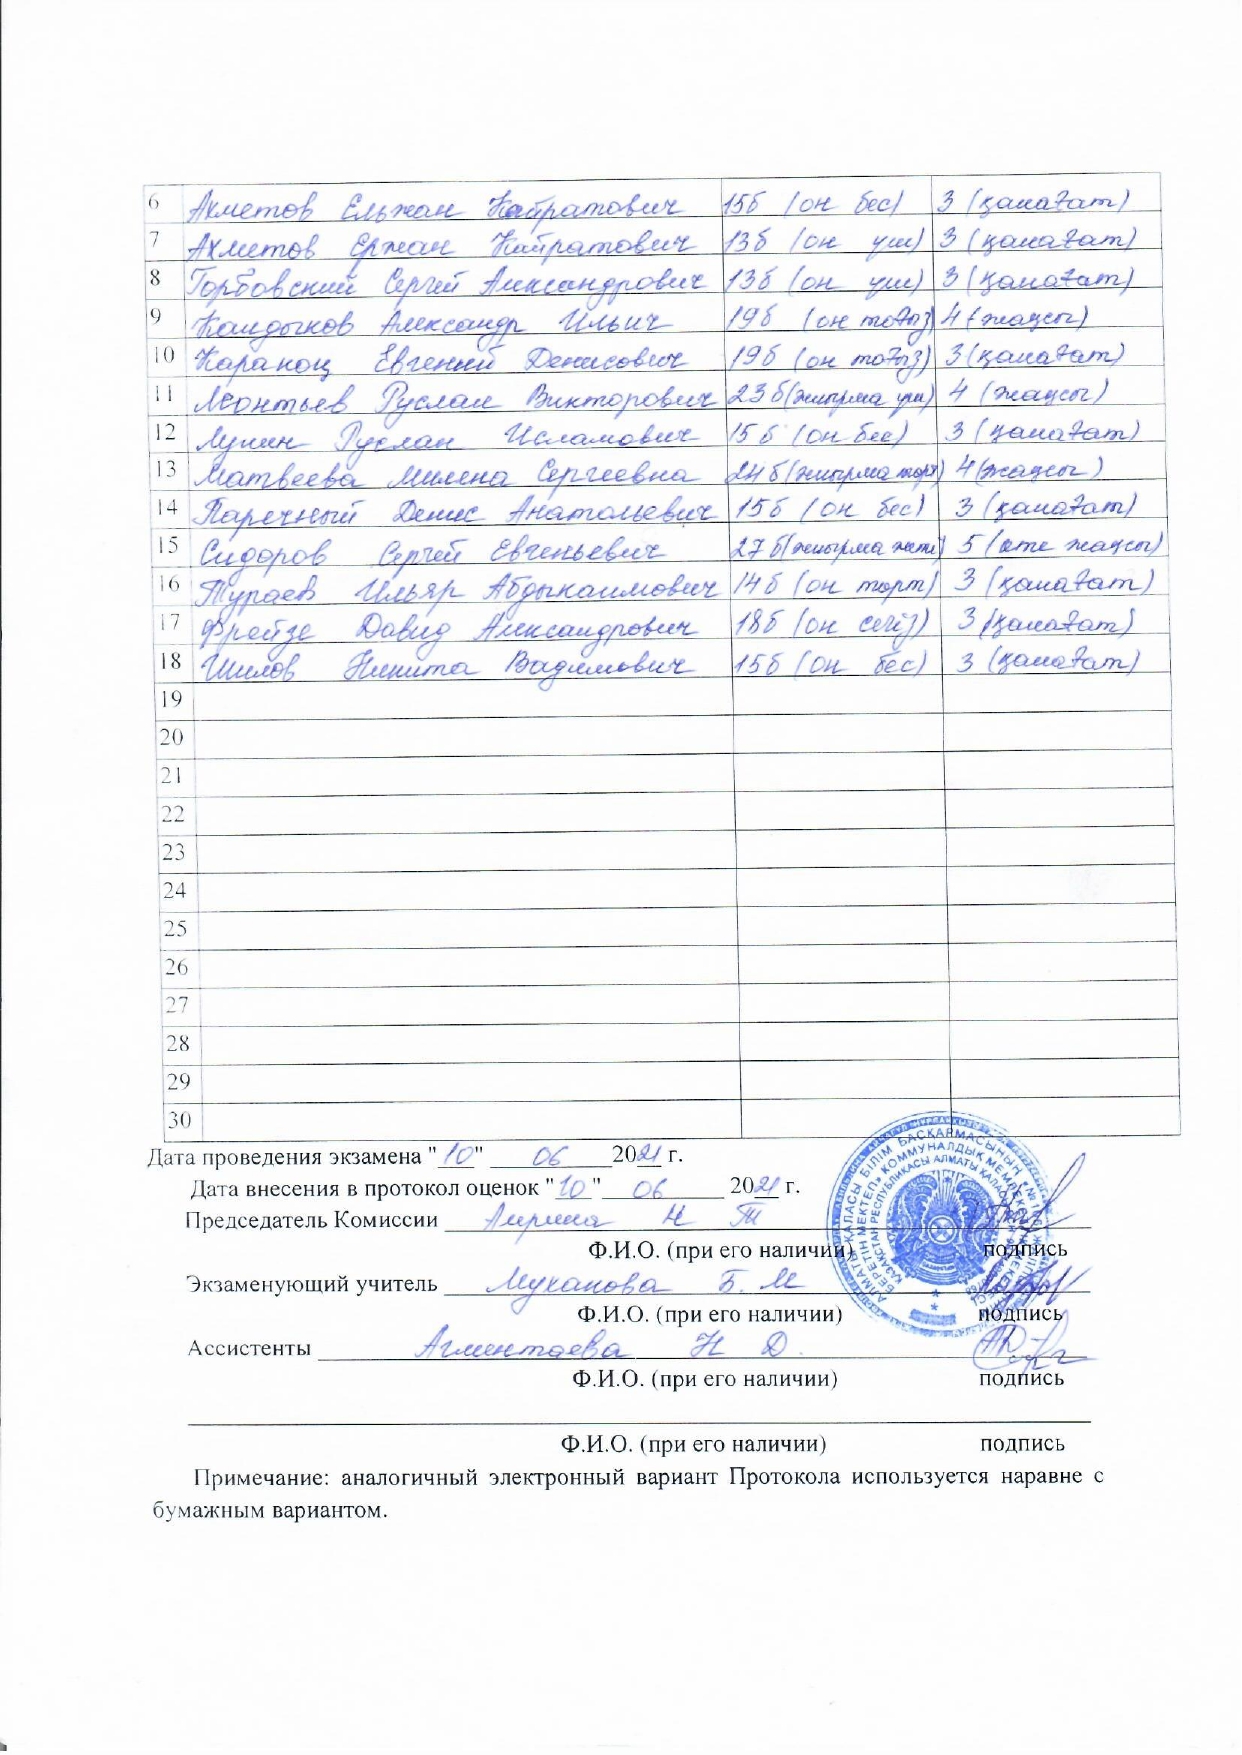 6 Ахметов Ельжан Кайратович 15б (он бес) 3 (қанағат)
7 Ахметов Ержан Кайратович 13б (он үш) 3 (қанағат)
8 Горбовский Сергей Александрович 13б (он үш) 3 (қанағат)
9 Кандыков Александр Ильич 19б (он тоғыз) 4 (жақсы)
10 Каракоц Евгений Денисович 19б (он тоғыз) 3 (қанағат)
11 Леонтьев Руслан Викторович 23б (жиырма үш) 4 (жақсы)
12 Лунин Руслан Исламович 15б (он бес) 3 (қанағат)
13 Матвеева Милена Сергеевна 24б (жиырма төрт) 4 (жақсы)
14 Паречный Денис Анатольевич 15б (он бес) 3 (қанағат)
15 Сидоров Сергей Евгеньевич 27б (жиырма жеті) 5 (өте жақсы)
16 Тураев Ильяр Абдыкаимович 14б (он төрт) 3 (қанағат)
17 Фрейзе Давид Александрович 18б (он сегіз) 3 (қанағат)
18 Шилов Никита Вадимович 15б (он бес) 3 (қанағат)
19
20
21
22
23
24
25
26
27
28
29
30
Дата проведения экзамена "10" 06 2021 г.
Дата внесения в протокол оценок "10" 06 2021 г.
Председатель Комиссии Лирина Н Т
Ф.И.О. (при его наличии) подпись
Экзаменующий учитель Муканова Б. М
Ф.И.О. (при его наличии) подпись
Ассистенты Агментаева Н Д.
Ф.И.О. (при его наличии) подпись
Ф.И.О. (при его наличии) подпись
Примечание: аналогичный электронный вариант Протокола используется наравне с
бумажным вариантом.